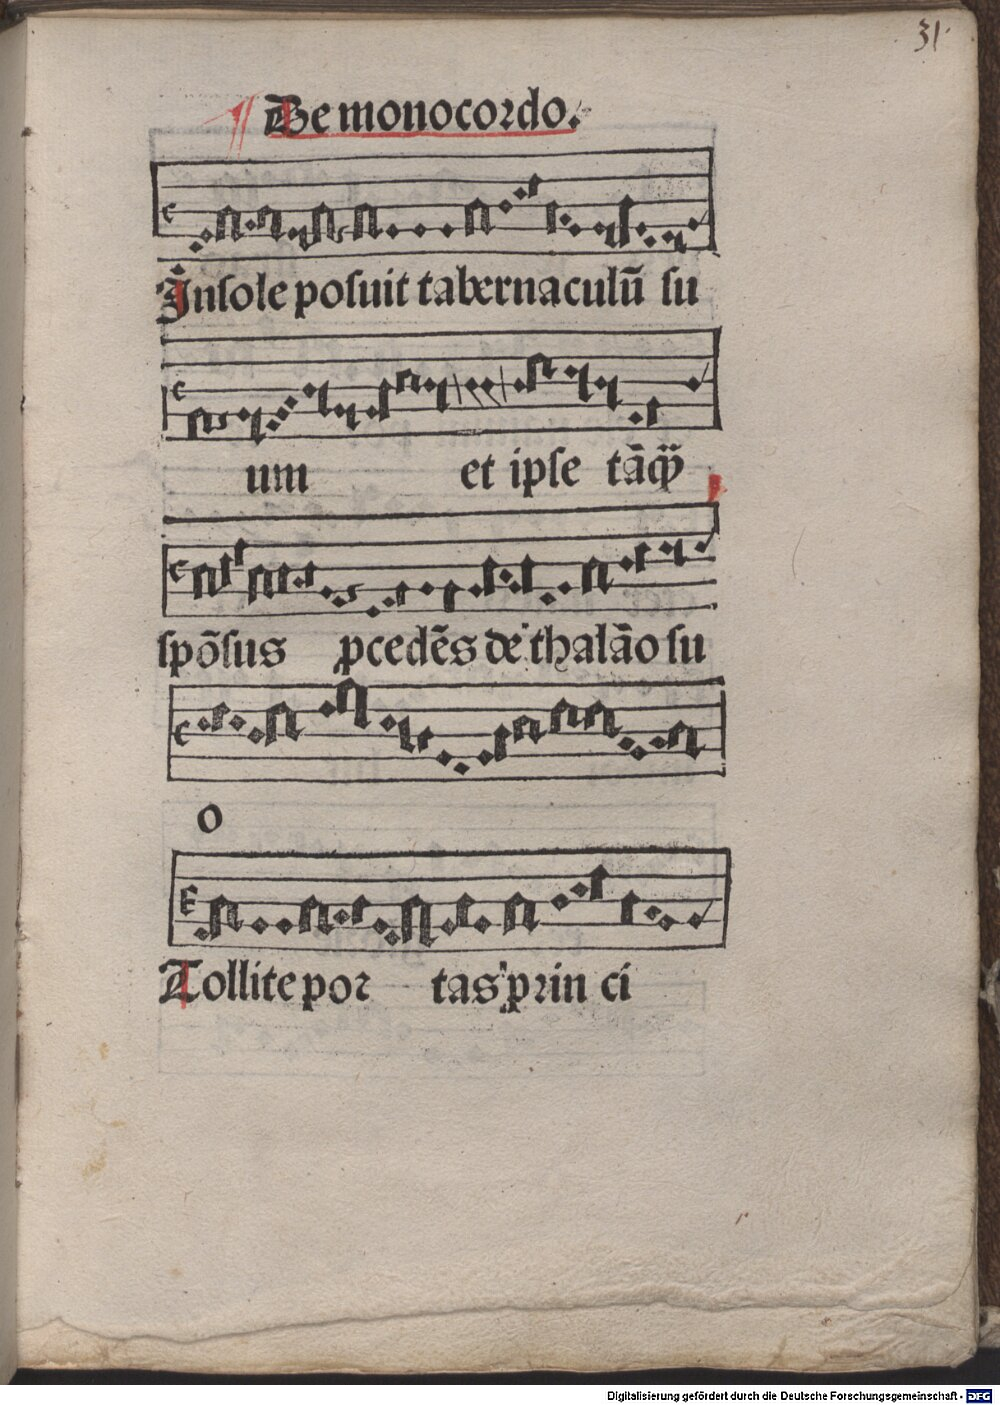 31
De monocordo.
In sole posuit tabernaculū su
um et ipse tāqȝ
spōsus ꝓcedēs de thalāo su
o
Tollite por tas prin ci
Digitalisierung gefördert durch die Deutsche Forschungsgemeinschaft - DFG